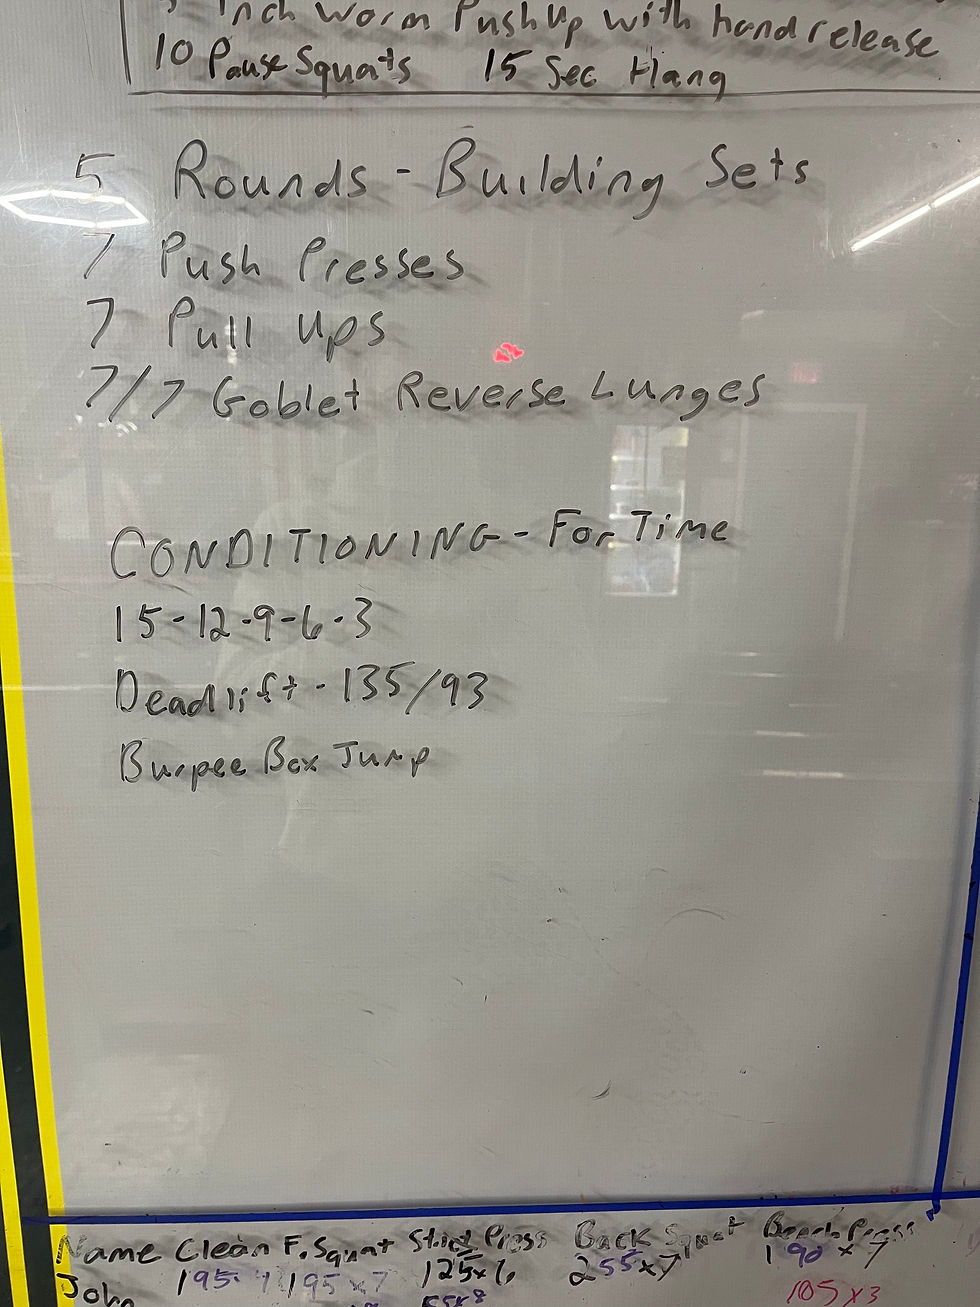 Inch Worm Push Up with hand release
10 Pause Squats 15 Sec Hang
5 Rounds - Building Sets
7 Push Presses
7 Pull Ups
7/7 Goblet Reverse Lunges
CONDITIONING - For Time
15-12-9-6-3
Deadlift - 135/93
Burpee Box Jump
Name Clean F. Squat Strict Press Back Squat Bench Press
John 195 195 x 7 125x6 255x7 190 x 7
55x8 105 x 3